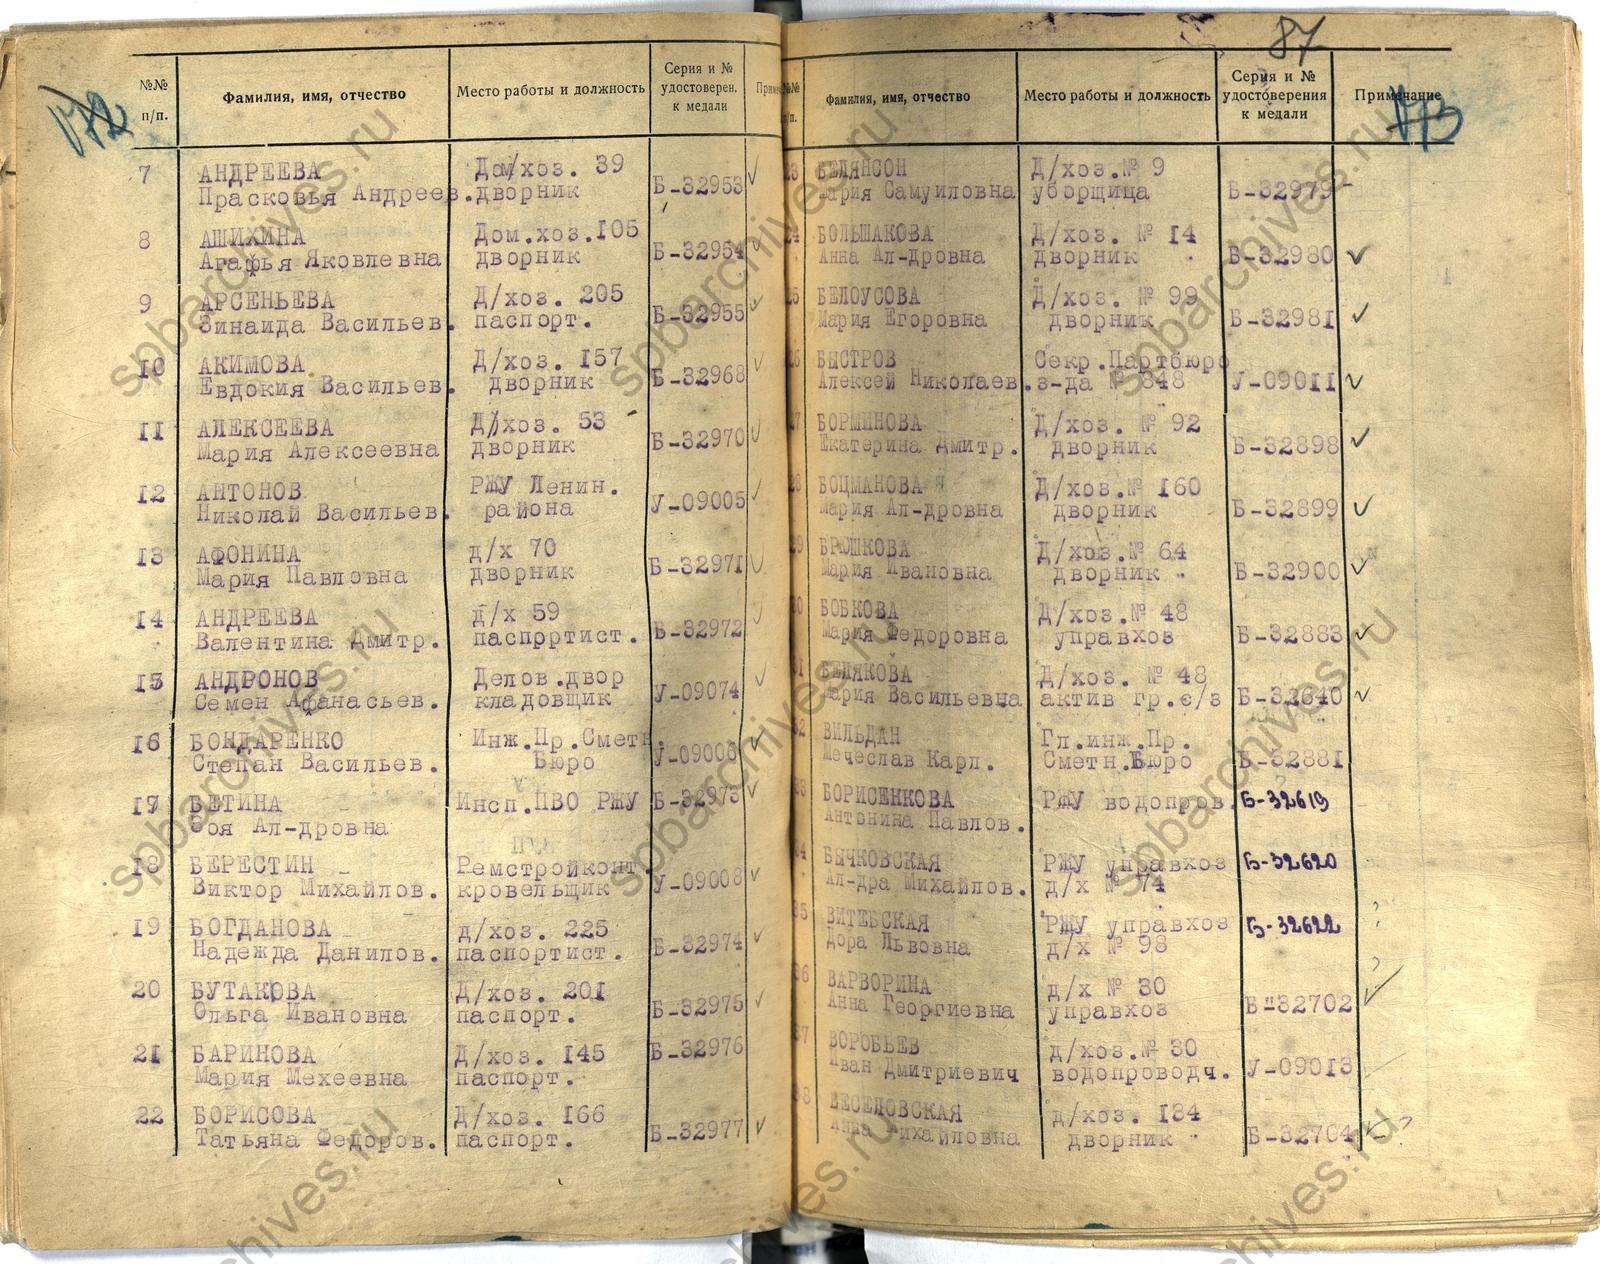 №№ п/п.
Фамилия, имя, отчество
Место работы и должность
Серия и № удостоверен. к медали
7 АНДРЕЕВА Дом/хоз. 39
Прасковья Андреев. дворник Б-32953
8 АШИХИНА Дом.хоз.105
Агафья Яковлевна дворник Б-32954
9 АРСЕНЬЕВА Д/хоз. 205
Зинаида Васильев. паспорт. Б-32955
10 АКИМОВА Д/хоз. 157
Евдокия Васильев. дворник Б-32968
11 АЛЕКСЕЕВА Д/хоз. 53
Мария Алексеевна дворник Б-32970
12 АНТОНОВ РЖУ Ленин.
Николай Васильев. района У-09005
13 АФОНИНА д/х 70
Мария Павловна дворник Б-32971
14 АНДРЕЕВА д/х 59
Валентина Дмитр. паспрртист. Б-32972
15 АНДРОНОВ Делов.двор
Семен Афанасьев. кладовщик У-09074
16 БОНДАРЕНКО Инж.Пр.Сметн.
Степан Васильев. Бюро У-09006
17 БЕТИНА Инсп.ПВО РЖУ Б-32973
Зоя Ал-дровна
18 БЕРЕСТИН Ремстройконт.
Виктор Михайлов. кровельщик У-09008
19 БОГДАНОВА д/хоз. 225
Надежда Данилов. паспортист. Б-32974
20 БУТАКОВА Д/хоз. 201
Ольга Ивановна паспорт. Б-32975
21 БАРИНОВА Д/хоз. 145 Б-32976
Мария Мехеевна паспорт.
22 БОРИСОВА Д/хоз. 166
Татьяна Федоров. паспорт. Б-32977
87
Фамилия, имя, отчество
Место работы и должность
Серия и № удостоверения к медали
Примечание
23 БЕЛЯНСОН Д/хоз.№ 9
Мария Самуиловна уборщица Б-32979
24 БОЛЬШАКОВА Д/хоз. № 14
Анна Ал-дровна дворник Б-32980
25 БЕЛОУСОВА Д/хоз. № 99
Мария Егоровна дворник Б-32981
26 БЫСТРОВ Секр.Партбюро
Алексей Николаев. з-да № 848 У-09011
27 БОРМИНОВА Д/хоз. № 92
Екатерина Дмитр. дворник Б-32898
28 БОЦМАНОВА Д/хоз.№ 160
Мария Ал-дровна дворник Б-32899
29 БРЮШКОВА Д/хоз.№ 64
Мария Ивановна дворник Б-32900
30 БОБКОВА Д/хоз.№ 48
Мария Федоровна управхоз Б-32883
31 БЕЛЯКОВА Д/хоз. № 48
Мария Васильевна актив гр.с/з Б-32640
32 ВИЛЬДАН Гл.инж.Пр.
Мечеслав Карл. Сметн.Бюро Б-32881
33 БОРИСЕНКОВА РЖУ водопров. Б-32619
Антонина Павлов.
34 БЫЧКОВСКАЯ РЖУ управхоз Б-32620
Ал-дра Михайлов. д/х № 74
35 ВИТЕБСКАЯ РЖУ управхоз Б-32622
Дора Львовна д/х № 98
36 ВАРВОРИНА д/х № 30
Анна Георгиевна управхоз Б-32702
37 ВОРОБЬЕВ д/хоз.№ 30
Иван Дмитриевич водопроводч. У-09013
38 ВЕСЕЛОВСКАЯ д/хоз. 134
Анна Михайловна дворник Б-32704
spbarchives.ru